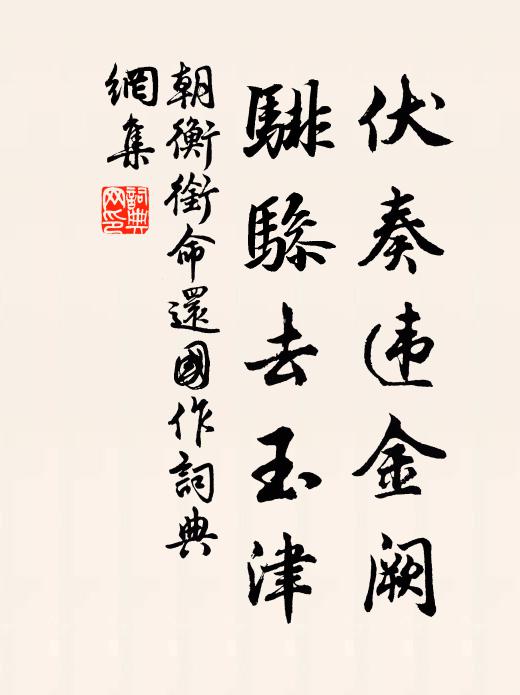 伏奏违金阙
騑驂去玉津
朝衡銜命還國作詞典
網集
詞典网印